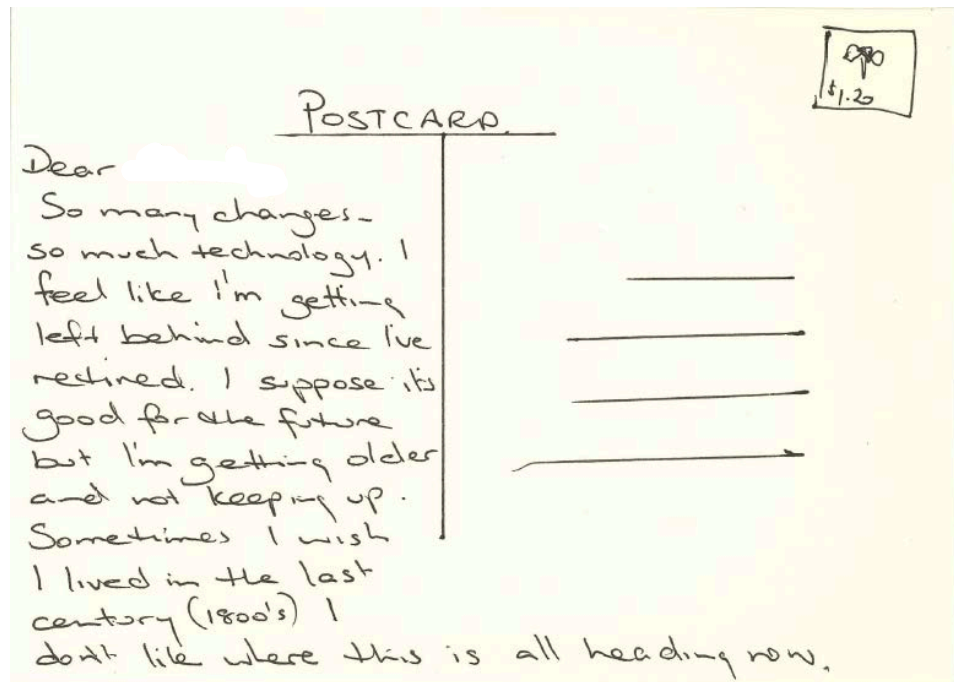 POSTCARD.
$1.20
Dear
So many changes-
so much technology. I
feel like I'm getting
left behind since I've
retired. I suppose it's
good for the future
but I'm getting older
and not keeping up.
Sometimes I wish
I lived in the last
century (1800's) I
don't like where this is all heading now.